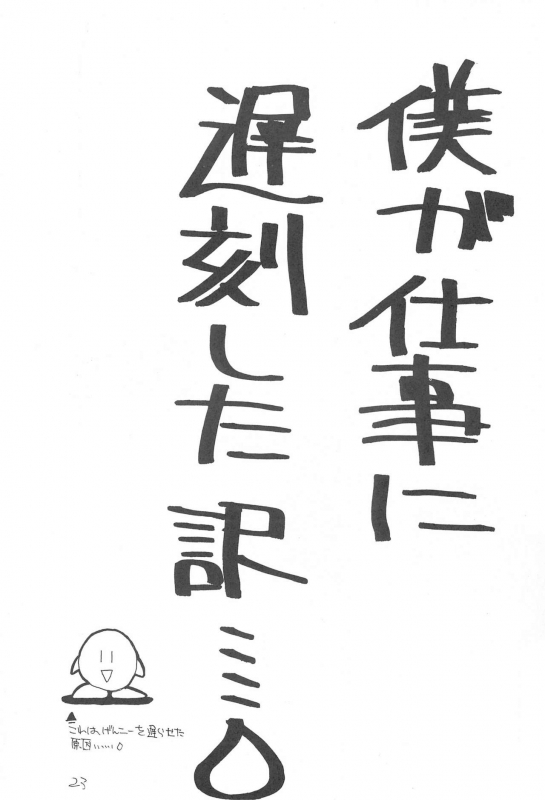 僕が仕事に
遅刻した訳…。
これは、げんニーを遅らせた
原因……。
23